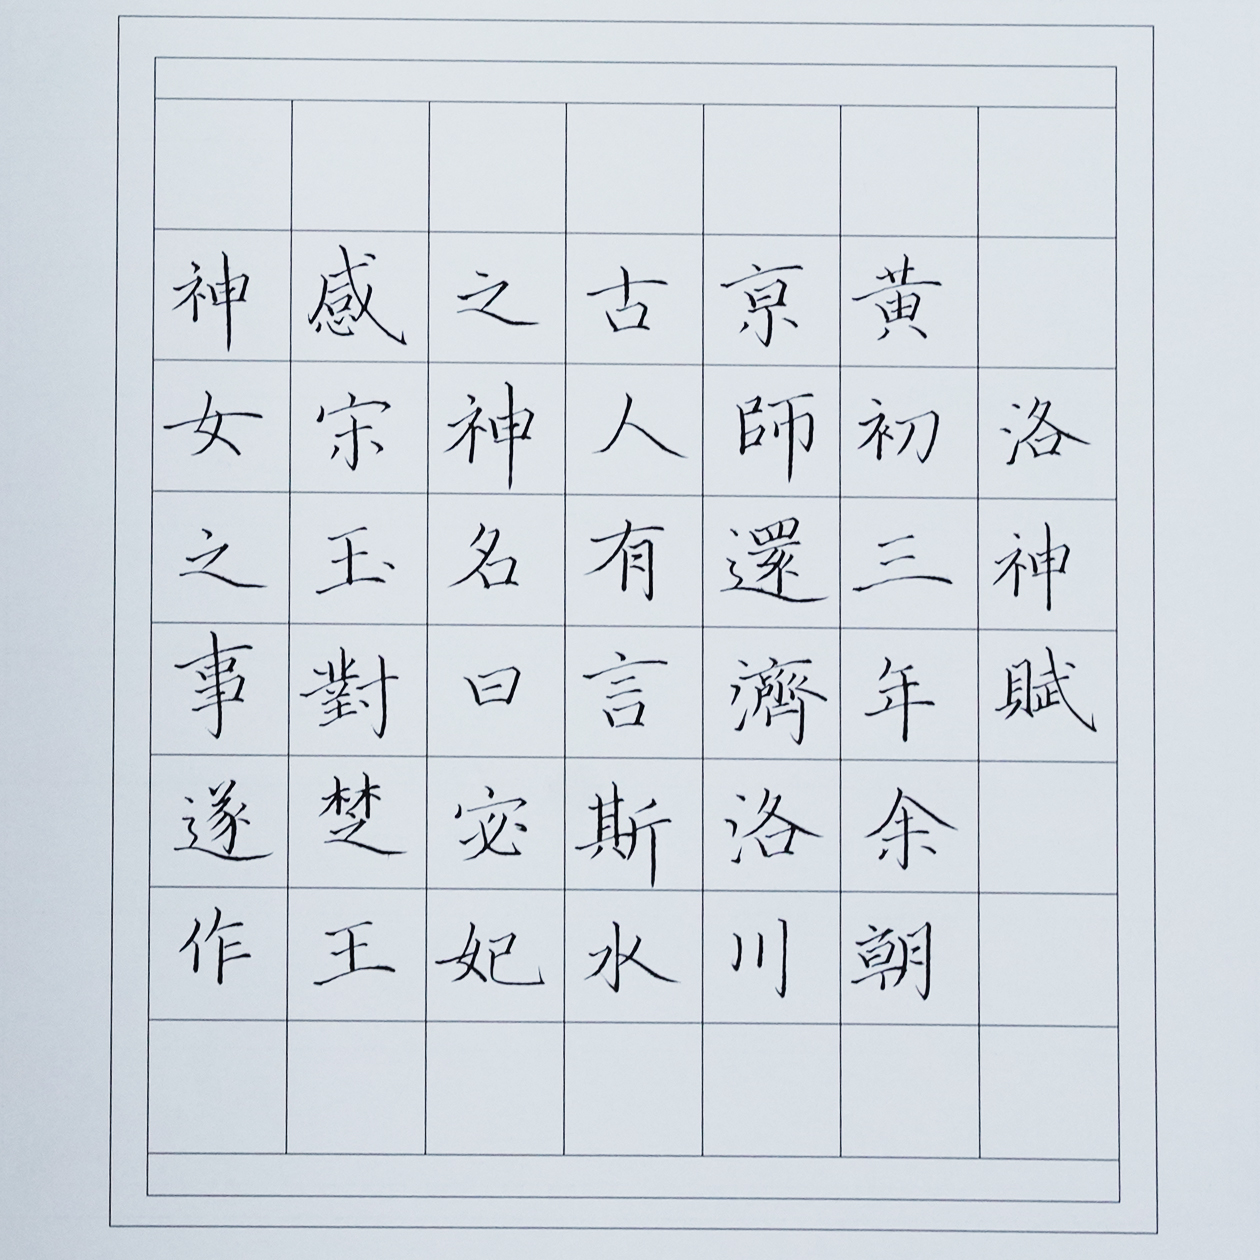 洛神賦
黃初三年余朝
京師還濟洛川
古人有言斯水
之神名曰宓妃
感宋玉對楚王
神女之事遂作